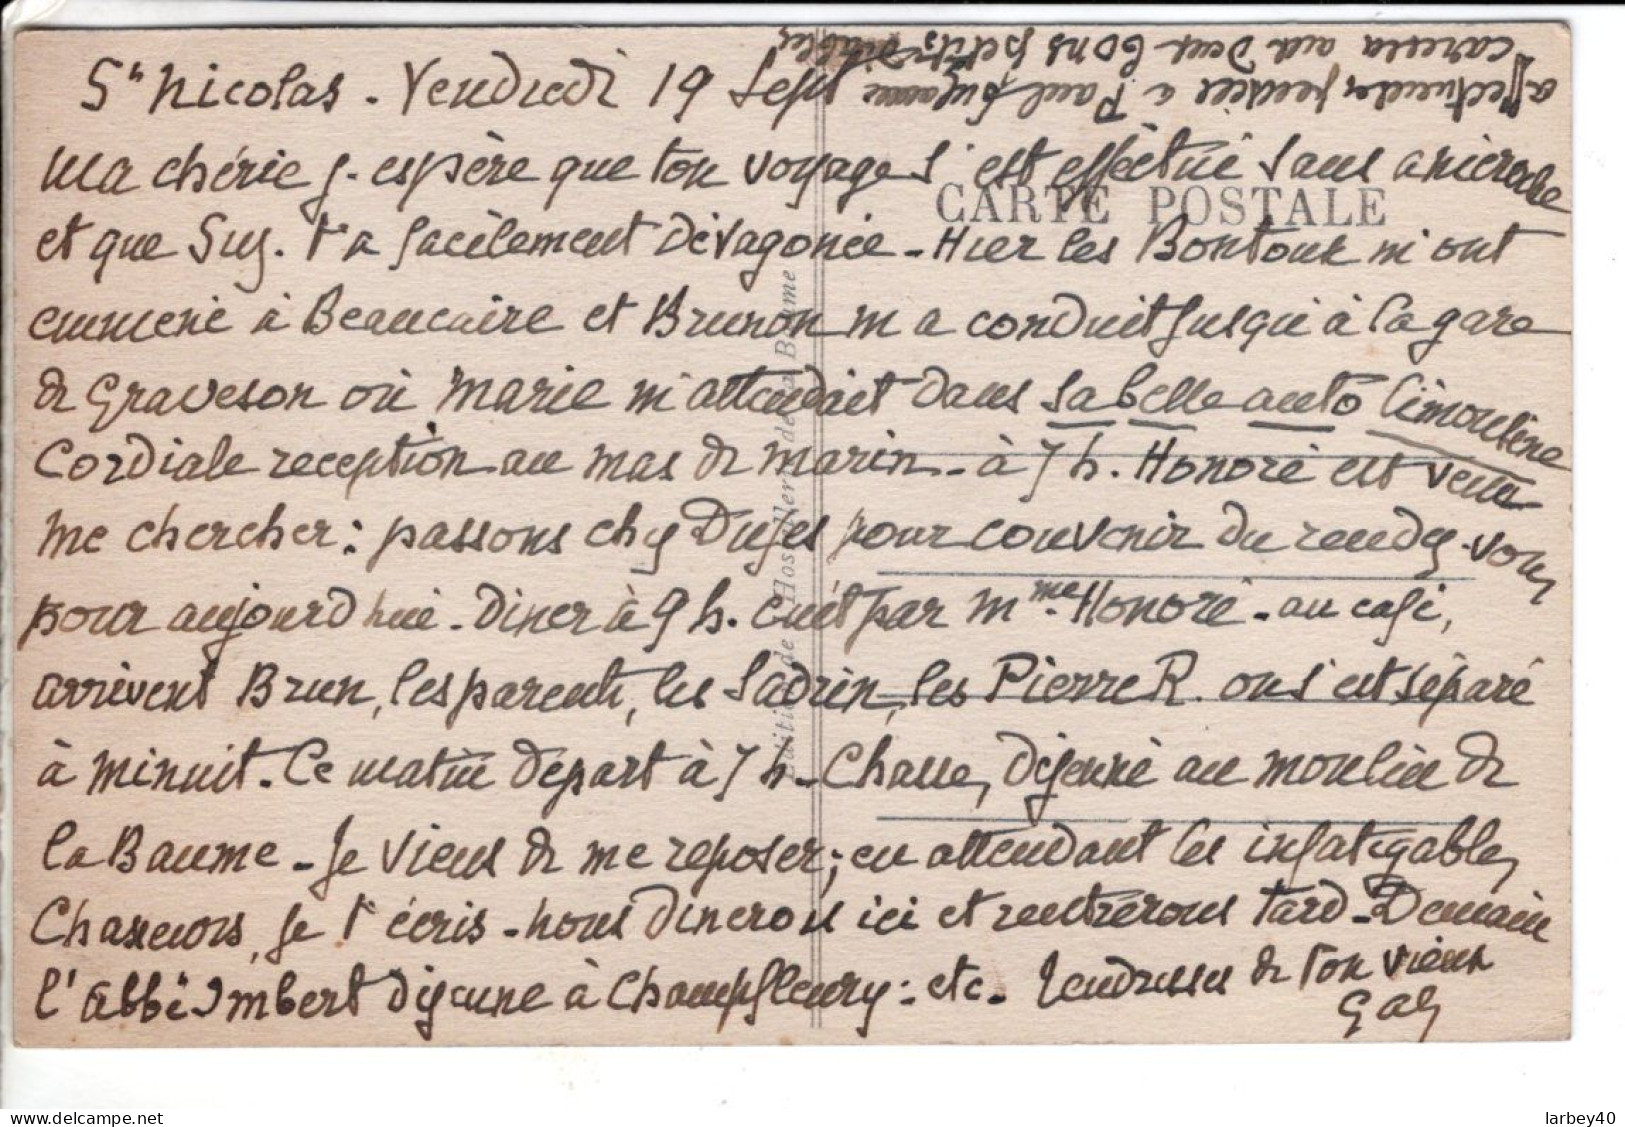 St Nicolas - Vendredi 19 Sept
affectueuses pensées à Paul Suzanne
caresses aux deux bons petits diables
CARTE POSTALE
Ma chérie j-espère que ton voyage s'est efféctué sans anicroche
et que Suz. t'a facilement dévagonée - Hier les Bontoux m'ont
emmené à Beaucaire et Brunon m a conduit jusqu'à la gare
de Graveson où Marie m'attendait dans sa belle auto limousine
Cordiale reception au mas de Marin - à 7 h. Honoré est venu
me chercher : passons chez Dufes pour convenir du rendez-vous
pour aujourd hui - Diner à 9 h. cuit par Mme Honoré - au café,
arrivent Brun, les parents, les Sadrin, les Pierre R. on s'est séparé
à minuit - Ce matin départ à 7 h - Chasse, déjeuné au moulin de
la Baume - Je viens de me reposer ; en attendant les infatigables
Chasseurs, je t'écris - nous dinerons ici et rentrerons tard - Demain
l'abbé Imbert déjeune à Champfleury - etc - Tendresses de ton vieux
Gas
Edition de Hostellerie de la Baume
larbey40
www.delcampe.net